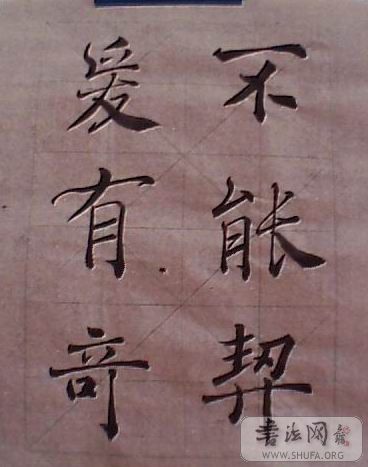 不能契
爰有奇
書法网
WWW.SHUFA.ORG